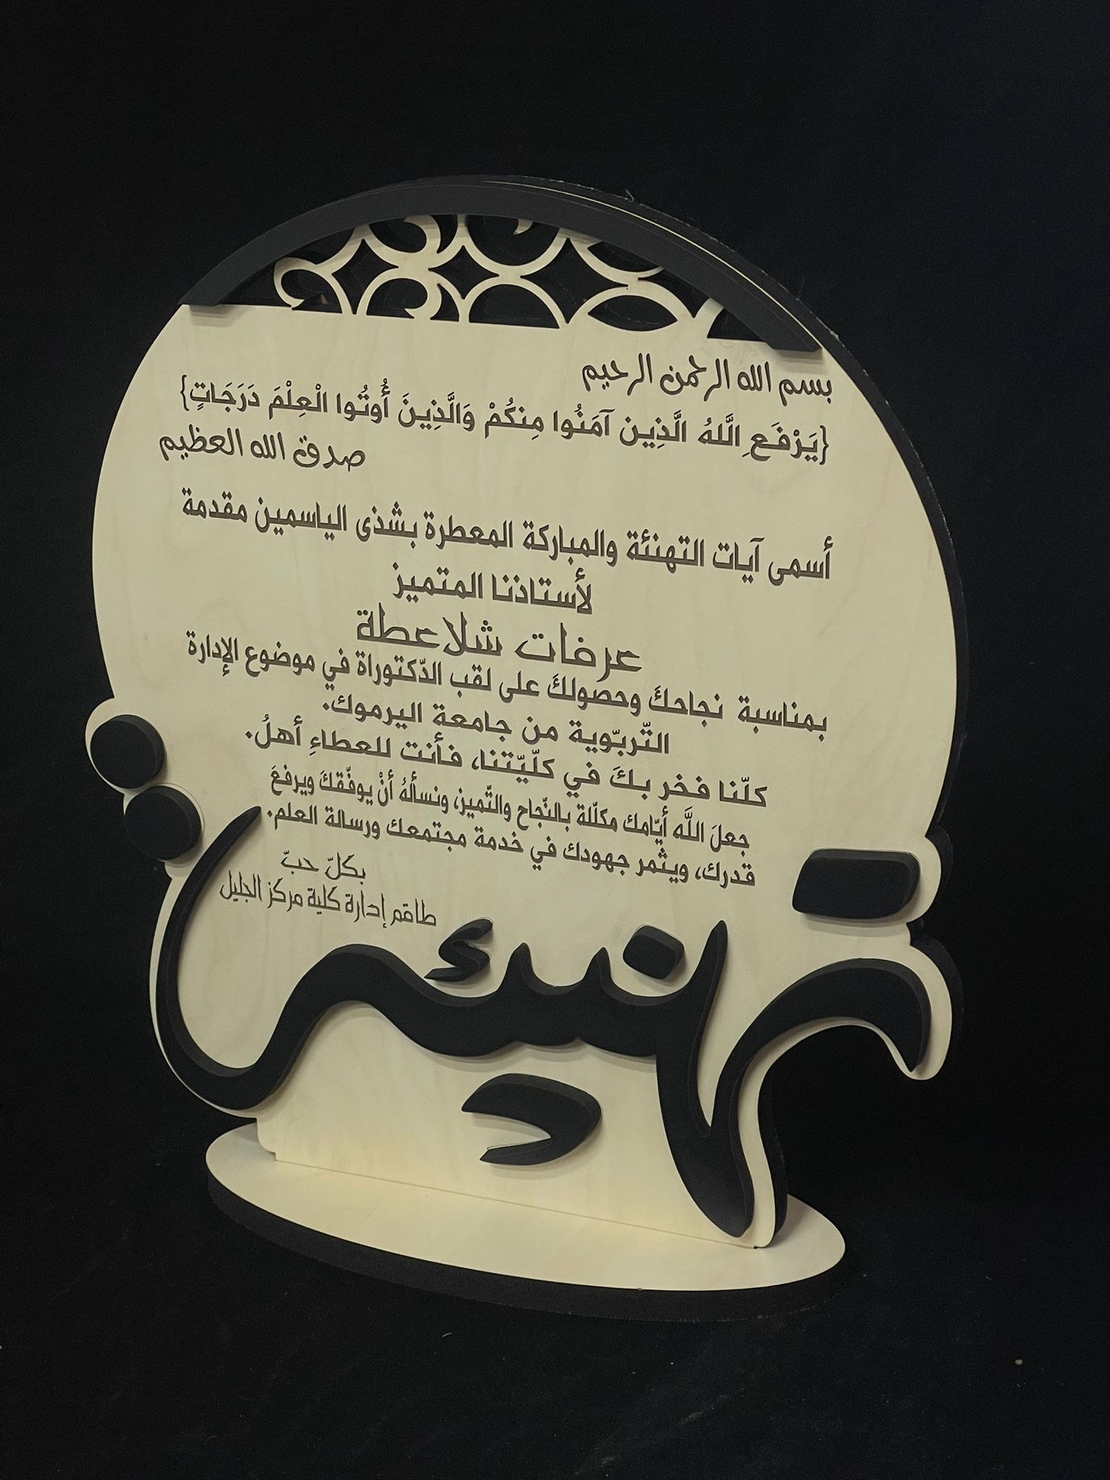 بسم الله الرحمن الرحيم
{يَرْفَعِ اللَّهُ الَّذِين آمَنُوا مِنكُمْ وَالَّذِينَ أُوتُوا الْعِلْمَ دَرَجَاتٍ}
صدق الله العظيم
أسمى آيات التهنئة والمباركة المعطرة بشذى الياسمين مقدمة
لأستاذنا المتميز
عرفات شلاعطة
بمناسبة نجاحكَ وحصولكَ على لقب الدّكتوراة في موضوع الإدارة
التّربّوية من جامعة اليرموك.
كلّنا فخر بكَ في كلّيّتنا، فأنت للعطاءِ أهلُ.
جعلَ اللَّه أيّامك مكلّلة بالنّجاح والتّميز، ونسألهُ أنْ يوفّقكَ ويرفعَ
قدرك، ويثمر جهودك في خدمة مجتمعك ورسالة العلم.
بكلّ حبّ
طاقم إدارة كلية مركز الجليل
تهنئة